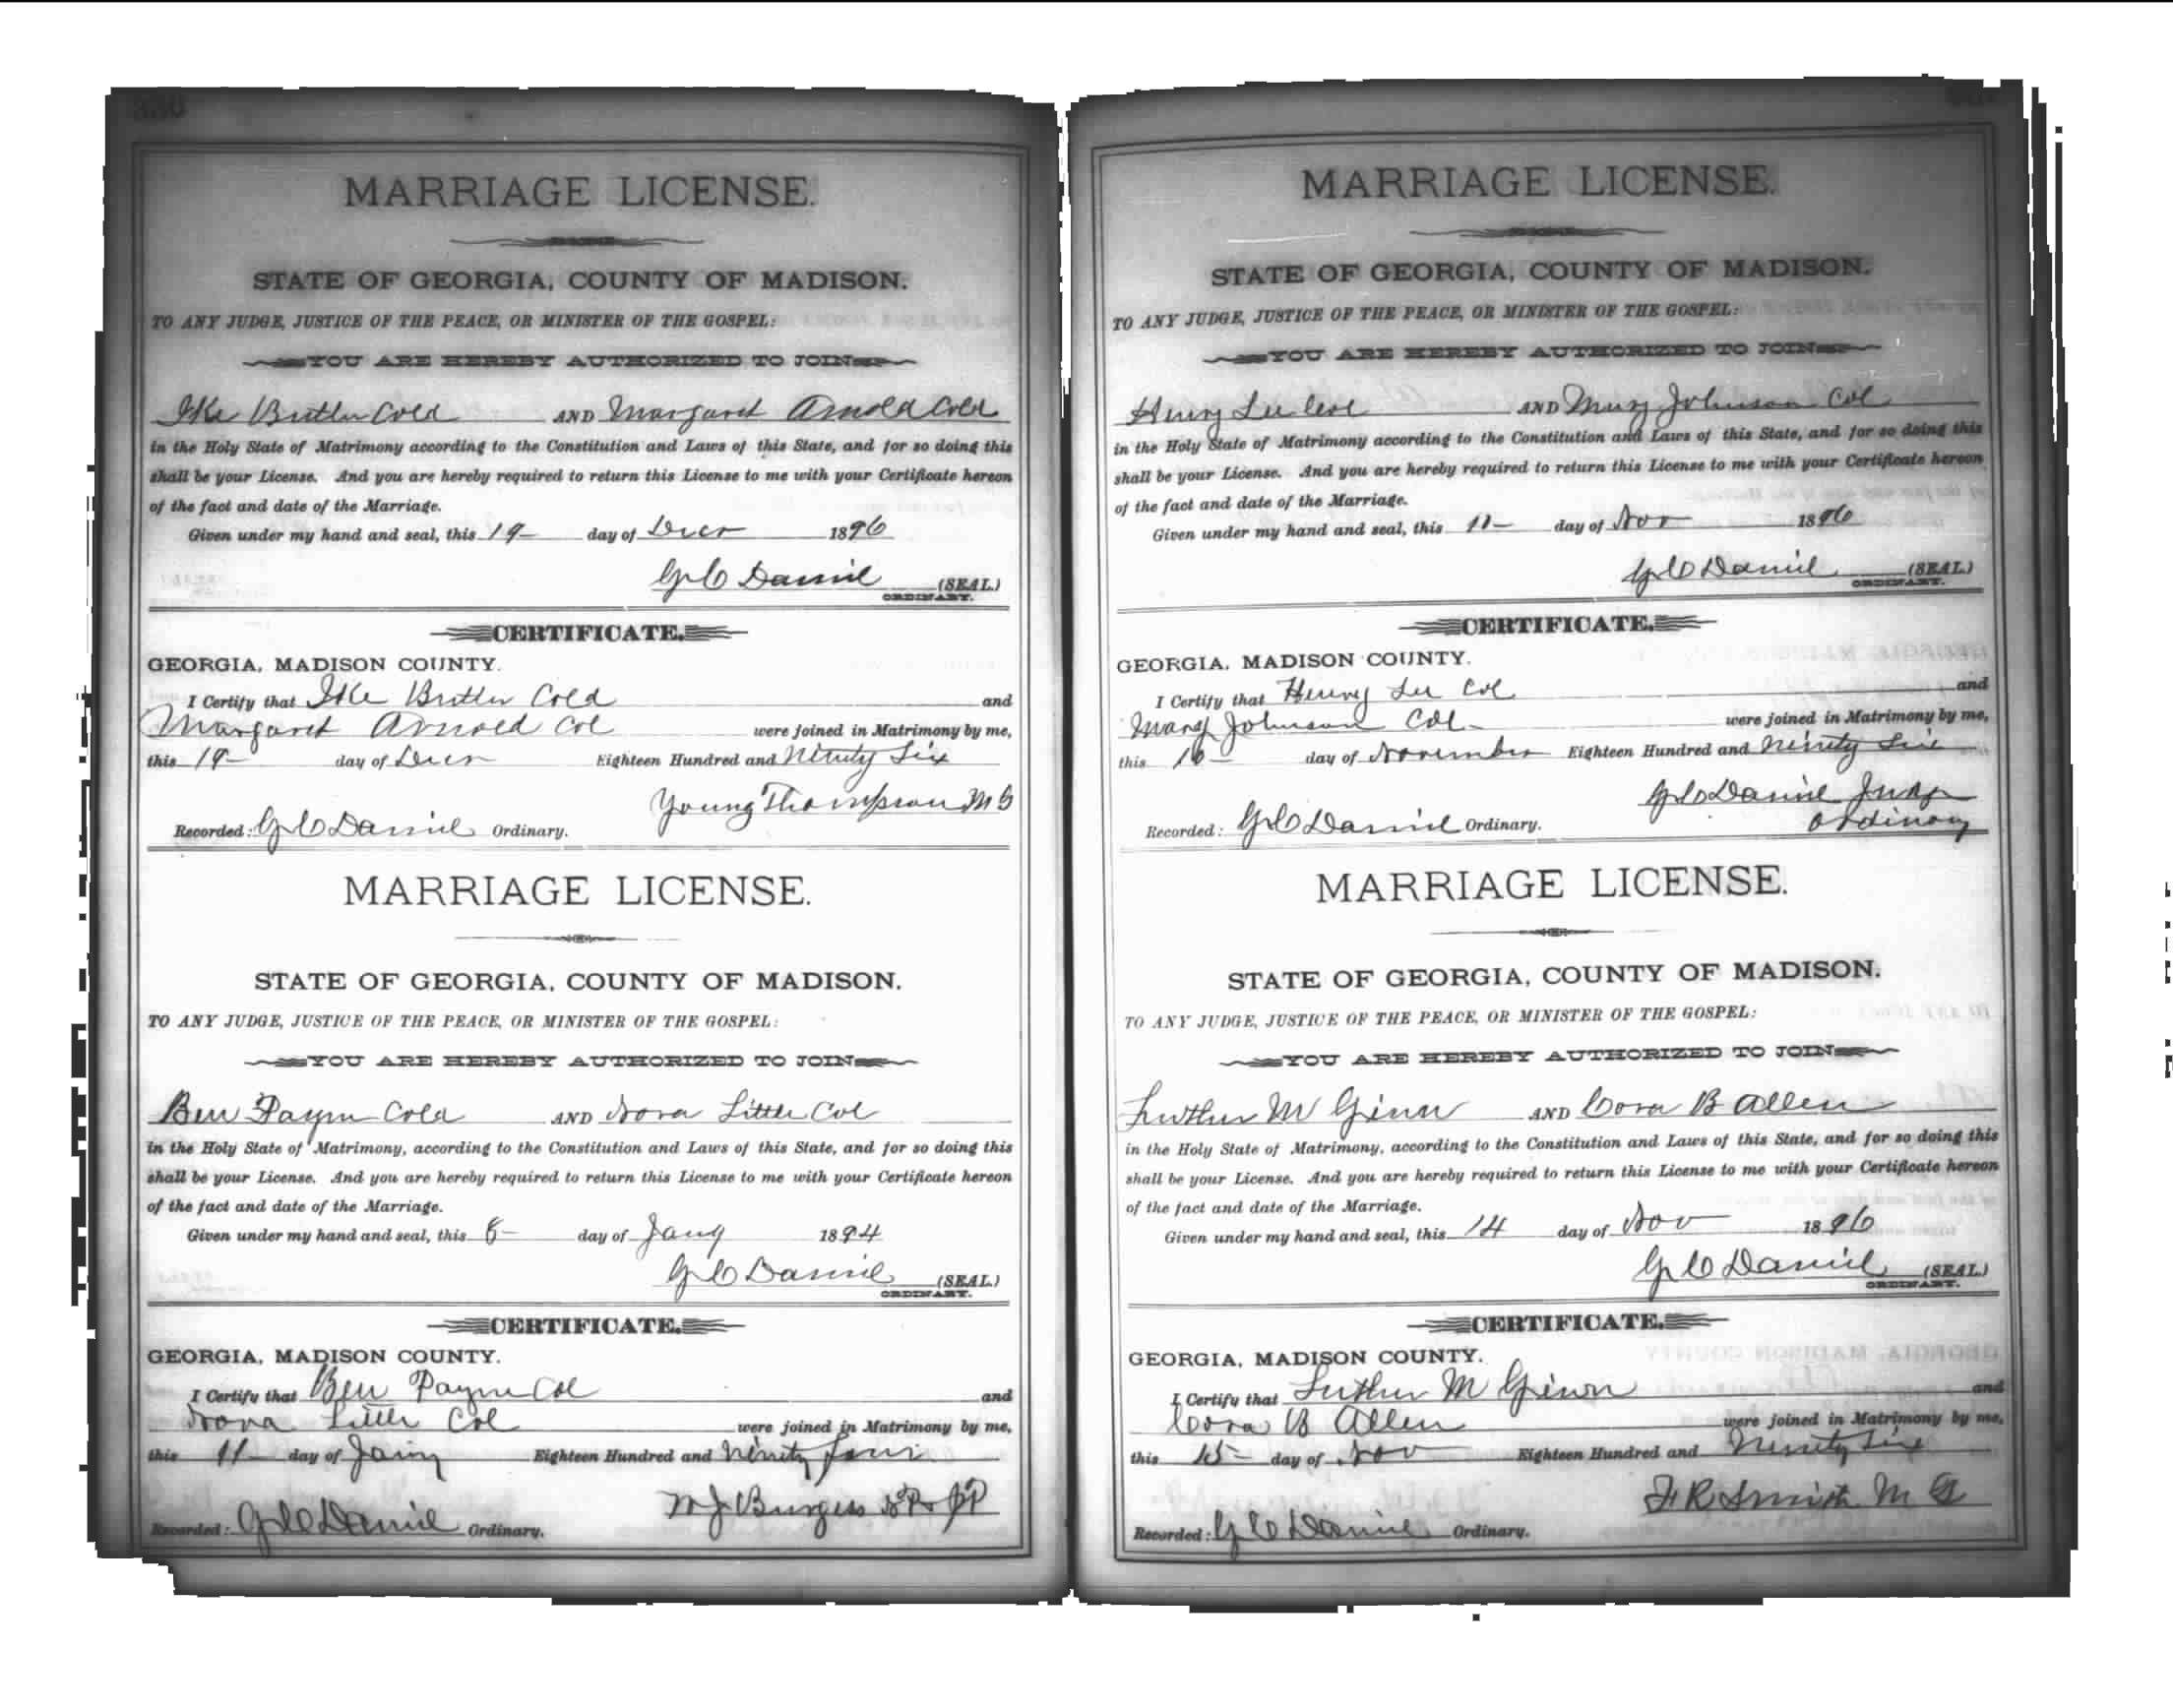 330
MARRIAGE LICENSE.
STATE OF GEORGIA, COUNTY OF MADISON.
TO ANY JUDGE, JUSTICE OF THE PEACE, OR MINISTER OF THE GOSPEL:
YOU ARE HEREBY AUTHORIZED TO JOIN
Ike Butler Cold AND Margaret Arnold Cold
in the Holy State of Matrimony according to the Constitution and Laws of this State, and for so doing this
shall be your License. And you are hereby required to return this License to me with your Certificate hereon
of the fact and date of the Marriage.
Given under my hand and seal, this 19 day of Decr 1896
G C Daniel (SEAL)
ORDINARY.
CERTIFICATE.
GEORGIA, MADISON COUNTY.
I Certify that Ike Butler Cold and
Margaret Arnold Col were joined in Matrimony by me,
this 19 day of Decr Eighteen Hundred and Ninety Six
Young Thompson M G
Recorded: G C Daniel Ordinary.
MARRIAGE LICENSE.
STATE OF GEORGIA, COUNTY OF MADISON.
TO ANY JUDGE, JUSTICE OF THE PEACE, OR MINISTER OF THE GOSPEL:
YOU ARE HEREBY AUTHORIZED TO JOIN
Ben Payne Cold AND Nora Little Col
in the Holy State of Matrimony, according to the Constitution and Laws of this State, and for so doing this
shall be your License. And you are hereby required to return this License to me with your Certificate hereon
of the fact and date of the Marriage.
Given under my hand and seal, this day of Jany 1894
G C Daniel (SEAL)
ORDINARY.
CERTIFICATE.
GEORGIA, MADISON COUNTY.
I Certify that Ben Payne Col and
Nora Little Col were joined in Matrimony by me,
this 11 day of Jany Eighteen Hundred and Ninety four
M J Burgess JP
Recorded: G C Daniel Ordinary.
MARRIAGE LICENSE.
STATE OF GEORGIA, COUNTY OF MADISON.
TO ANY JUDGE, JUSTICE OF THE PEACE, OR MINISTER OF THE GOSPEL:
YOU ARE HEREBY AUTHORIZED TO JOIN
Henry Lee Col AND Mary Johnson Col
in the Holy State of Matrimony according to the Constitution and Laws of this State, and for so doing this
shall be your License. And you are hereby required to return this License to me with your Certificate hereon
of the fact and date of the Marriage.
Given under my hand and seal, this day of Nov 1896
G C Daniel (SEAL)
ORDINARY.
CERTIFICATE.
GEORGIA, MADISON COUNTY.
I Certify that Henry Lee Col and
Mary Johnson Col were joined in Matrimony by me,
this day of November Eighteen Hundred and Ninety Six
G C Daniel Judge
Ordinary
Recorded: G C Daniel Ordinary.
MARRIAGE LICENSE.
STATE OF GEORGIA, COUNTY OF MADISON.
TO ANY JUDGE, JUSTICE OF THE PEACE, OR MINISTER OF THE GOSPEL:
YOU ARE HEREBY AUTHORIZED TO JOIN
Luther M Ginn AND Cora B Allen
in the Holy State of Matrimony, according to the Constitution and Laws of this State, and for so doing this
shall be your License. And you are hereby required to return this License to me with your Certificate hereon
of the fact and date of the Marriage.
Given under my hand and seal, this 14 day of Nov 1896
G C Daniel (SEAL)
ORDINARY.
CERTIFICATE.
GEORGIA, MADISON COUNTY.
I Certify that Luther M Ginn and
Cora B Allen were joined in Matrimony by me,
this 15 day of Nov Eighteen Hundred and Ninety Six
F R Smith M G
Recorded: G C Daniel Ordinary.